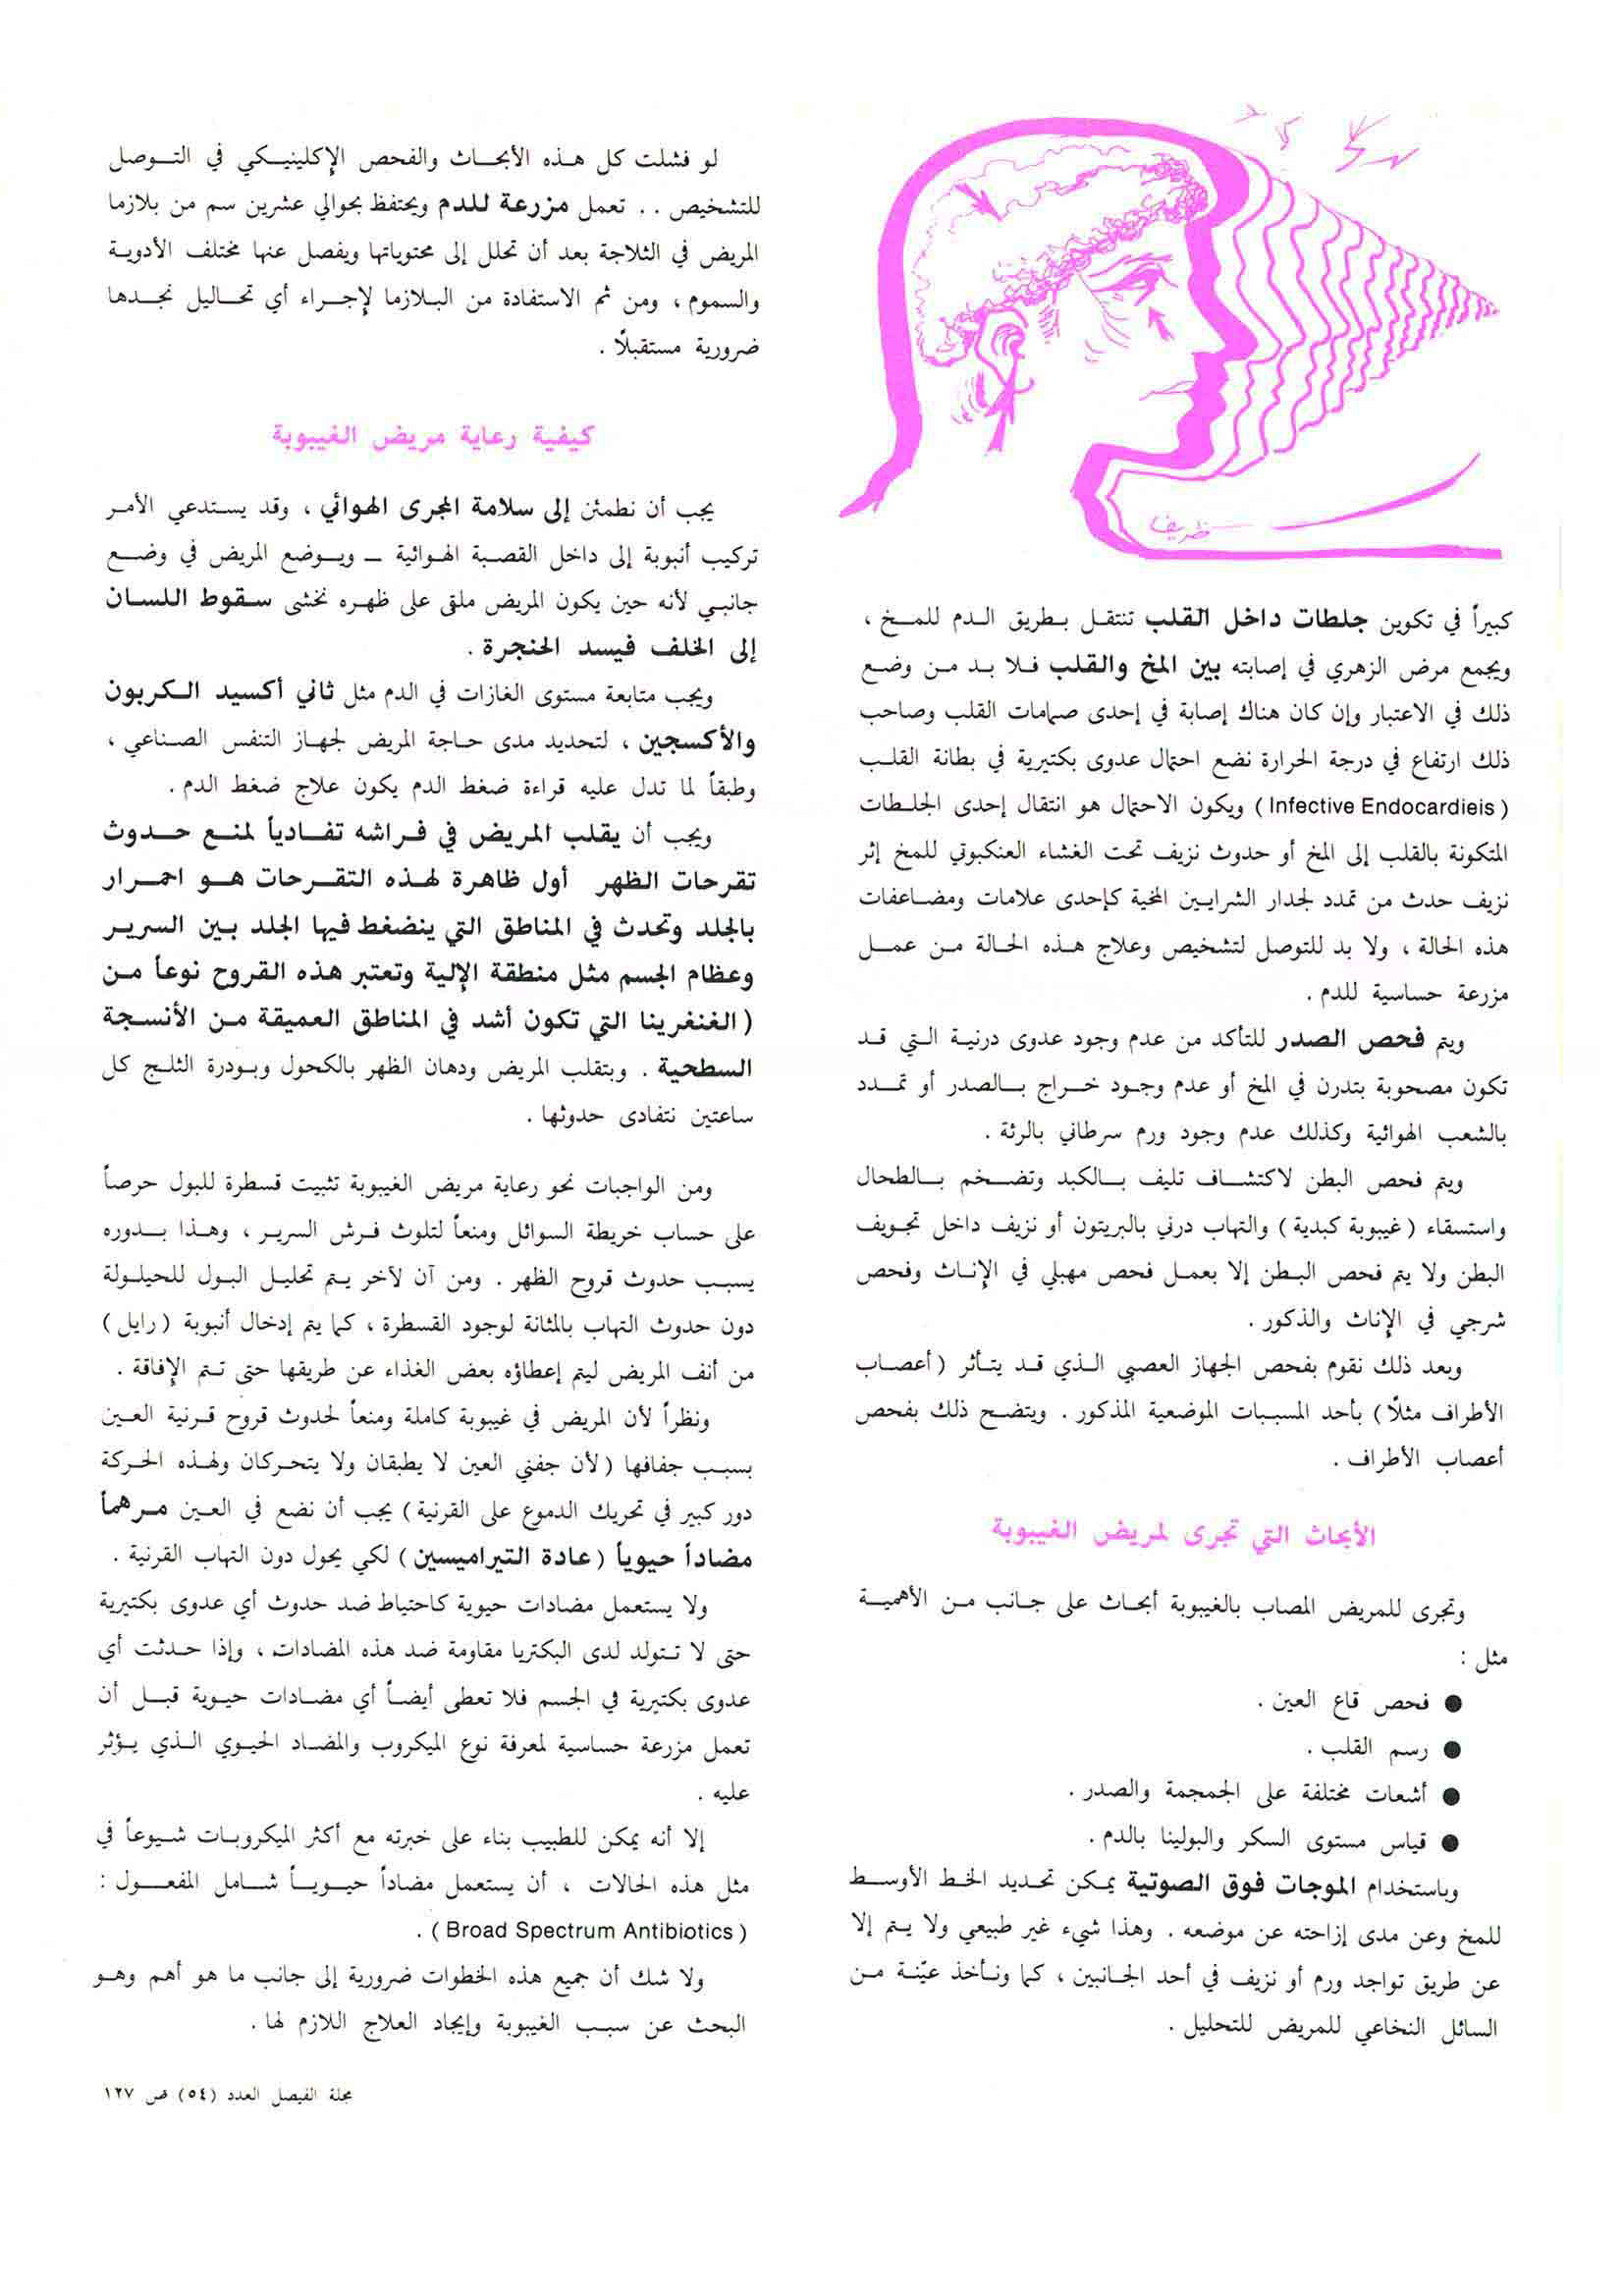 ظريف
كبيراً في تكوين جلطات داخل القلب تنتقل بطريق الدم للمخ ،
ويجمع مرض الزهري في إصابته بين المخ والقلب فلا بد من وضع
ذلك في الاعتبار وإن كان هناك إصابة في إحدى صمامات القلب وصاحب
ذلك ارتفاع في درجة الحرارة نضع احتمال عدوى بكتيرية في بطانة القلب
( Infective Endocardieis ) ويكون الاحتمال هو انتقال إحدى الجلطات
المتكونة بالقلب إلى المخ أو حدوث نزيف تحت الغشاء العنكبوتي للمخ إثر
نزيف حدث من تمدد لجدار الشرايين المخية كإحدى علامات ومضاعفات
هذه الحالة ، ولا بد للتوصل لتشخيص وعلاج هذه الحالة من عمل
مزرعة حساسية للدم .
ويتم فحص الصدر للتأكد من عدم وجود عدوى درنية التي قد
تكون مصحوبة بتدرن في المخ أو عدم وجود خراج بالصدر أو تمدد
بالشعب الهوائية وكذلك عدم وجود ورم سرطاني بالرئة .
ويتم فحص البطن لاكتشاف تليف بالكبد وتضخم بالطحال
واستسقاء ( غيبوبة كبدية ) والتهاب درني بالبريتون أو نزيف داخل تجويف
البطن ولا يتم فحص البطن إلا بعمل فحص مهبلي في الإناث وفحص
شرجي في الإناث والذكور .
وبعد ذلك نقوم بفحص الجهاز العصبي الذي قد يتأثر ( أعصاب
الأطراف مثلاً ) بأحد المسببات الموضعية المذكور . ويتضح ذلك بفحص
أعصاب الأطراف .
الأبحاث التي تجرى لمريض الغيبوبة
وتجرى للمريض المصاب بالغيبوبة أبحاث على جانب من الأهمية
مثل :
● فحص قاع العين .
● رسم القلب .
● أشعات مختلفة على الجمجمة والصدر .
● قياس مستوى السكر والبولينا بالدم .
وباستخدام الموجات فوق الصوتية يمكن تحديد الخط الأوسط
للمخ وعن مدى إزاحته عن موضعه . وهذا شيء غير طبيعي ولا يتم إلا
عن طريق تواجد ورم أو نزيف في أحد الجانبين ، كما ونأخذ عيّنة من
السائل النخاعي للمريض للتحليل .
لو فشلت كل هذه الأبحاث والفحص الإكلينيكي في التوصل
للتشخيص . . تعمل مزرعة للدم ويحتفظ بحوالي عشرين سم من بلازما
المريض في الثلاجة بعد أن تحلل إلى محتوياتها ويفصل عنها مختلف الأدوية
والسموم ، ومن ثم الاستفادة من البلازما لإجراء أي تحاليل نجدها
ضرورية مستقبلاً .
كيفية رعاية مريض الغيبوبة
يجب أن نطمئن إلى سلامة المجرى الهوائي ، وقد يستدعي الأمر
تركيب أنبوبة إلى داخل القصبة الهوائية – ويوضع المريض في وضع
جانبي لأنه حين يكون المريض ملقى على ظهره نخشى سقوط اللسان
إلى الخلف فيسد الحنجرة .
ويجب متابعة مستوى الغازات في الدم مثل ثاني أكسيد الكربون
والأكسجين ، لتحديد مدى حاجة المريض لجهاز التنفس الصناعي ،
وطبقاً لما تدل عليه قراءة ضغط الدم يكون علاج ضغط الدم .
ويجب أن يقلب المريض في فراشه تفادياً لمنع حدوث
تقرحات الظهر أول ظاهرة لهذه التقرحات هو احمرار
بالجلد وتحدث في المناطق التي ينضغط فيها الجلد بين السرير
وعظام الجسم مثل منطقة الإلية وتعتبر هذه القروح نوعاً من
( الغنغرينا التي تكون أشد في المناطق العميقة من الأنسجة
السطحية . وبتقلب المريض ودهان الظهر بالكحول وبودرة الثلج كل
ساعتين نتفادى حدوثها .
ومن الواجبات نحو رعاية مريض الغيبوبة تثبيت قسطرة للبول حرصاً
على حساب خريطة السوائل ومنعاً لتلوث فرش السرير ، وهذا بدوره
يسبب حدوث قروح الظهر . ومن آن لآخر يتم تحليل البول للحيلولة
دون حدوث التهاب بالمثانة لوجود القسطرة ، كما يتم إدخال أنبوبة ( رايل )
من أنف المريض ليتم إعطاؤه بعض الغذاء عن طريقها حتى تتم الإفاقة .
ونظراً لأن المريض في غيبوبة كاملة ومنعاً لحدوث قروح قرنية العين
بسبب جفافها ( لأن جفني العين لا يطبقان ولا يتحركان ولهذه الحركة
دور كبير في تحريك الدموع على القرنية ) يجب أن نضع في العين مرهماً
مضاداً حيوياً ( عادة التيراميسين ) لكي يحول دون التهاب القرنية .
ولا يستعمل مضادات حيوية كاحتياط ضد حدوث أي عدوى بكتيرية
حتى لا تتولد لدى البكتريا مقاومة ضد هذه المضادات ، وإذا حدثت أي
عدوى بكتيرية في الجسم فلا تعطى أيضاً أي مضادات حيوية قبل أن
تعمل مزرعة حساسية لمعرفة نوع الميكروب والمضاد الحيوي الذي يؤثر
عليه .
إلا أنه يمكن للطبيب بناء على خبرته مع أكثر الميكروبات شيوعاً في
مثل هذه الحالات ، أن يستعمل مضاداً حيوياً شامل المفعول :
( Broad Spectrum Antibiotics ) .
ولا شك أن جميع هذه الخطوات ضرورية إلى جانب ما هو أهم وهو
البحث عن سبب الغيبوبة وإيجاد العلاج اللازم لها .
مجلة الفيصل العدد (٥٤) ص ١٢٧